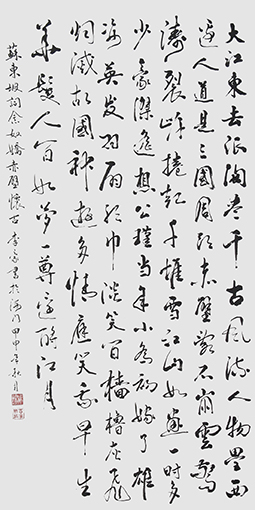 大江東去浪淘盡千古風流人物壘西
邊人道是三國周郎赤壁亂石崩雲驚
濤裂岸捲起千堆雪江山如畫一時多
少豪傑遙想公瑾當年小喬初嫁了雄
姿英發羽扇綸巾談笑間檣櫓灰飛
烟滅故國神遊多情應笑我早生
華髮人間如夢一尊還酹江月
蘇東坡詞念奴嬌赤壁懷古 李書於海門甲申年秋月